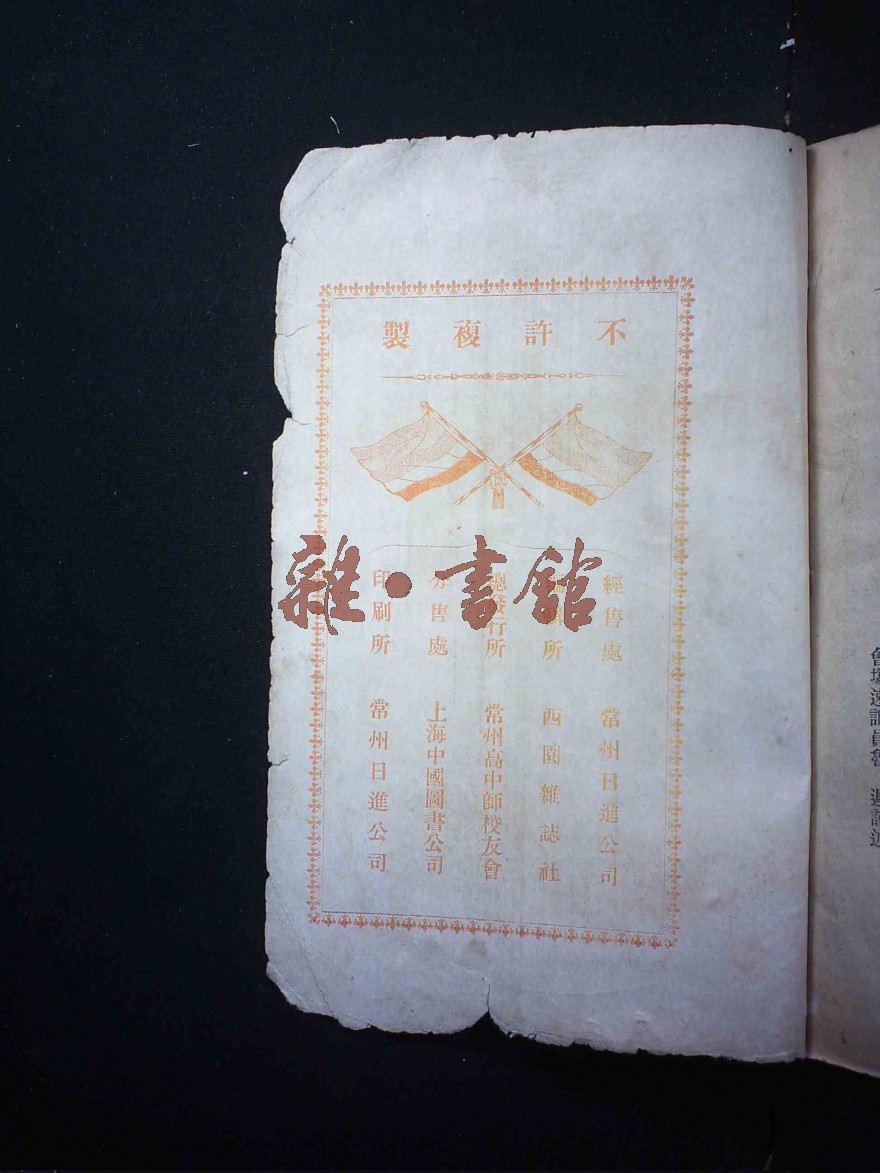 不許複製
經售處 常州日進公司
所 西園雜誌社
總發行所 常州高中師校友會
分售處 上海中國圖書公司
印刷所 常州日進公司
雜·書館